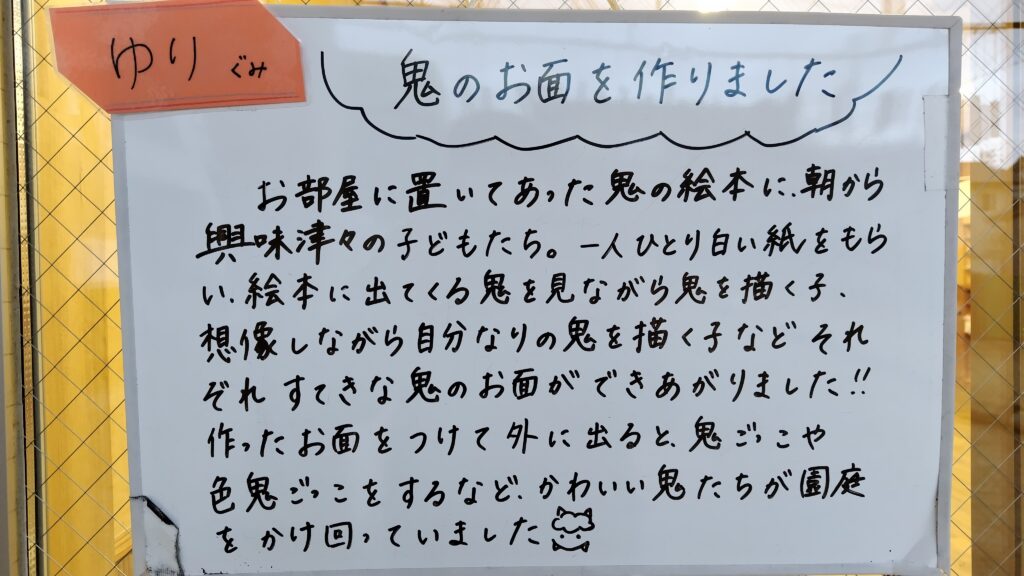 ゆり ぐみ
鬼のお面を作りました
お部屋に置いてあった鬼の絵本に、朝から
興味津々の子どもたち。一人ひとり白い紙をもら
い、絵本に出てくる鬼を見ながら鬼を描く子、
想像しながら自分なりの鬼を描く子など それ
ぞれ すてきな鬼のお面ができあがりました!!
作ったお面をつけて外に出ると、鬼ごっこや
色鬼ごっこをするなど、かわいい鬼たちが園庭
をかけ回っていました